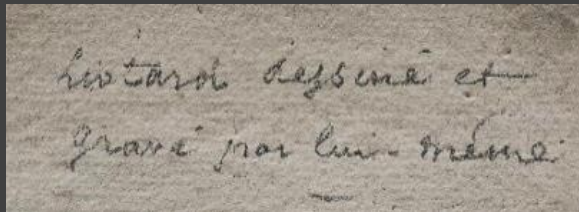 Liotard dessiné et
gravé par lui-même